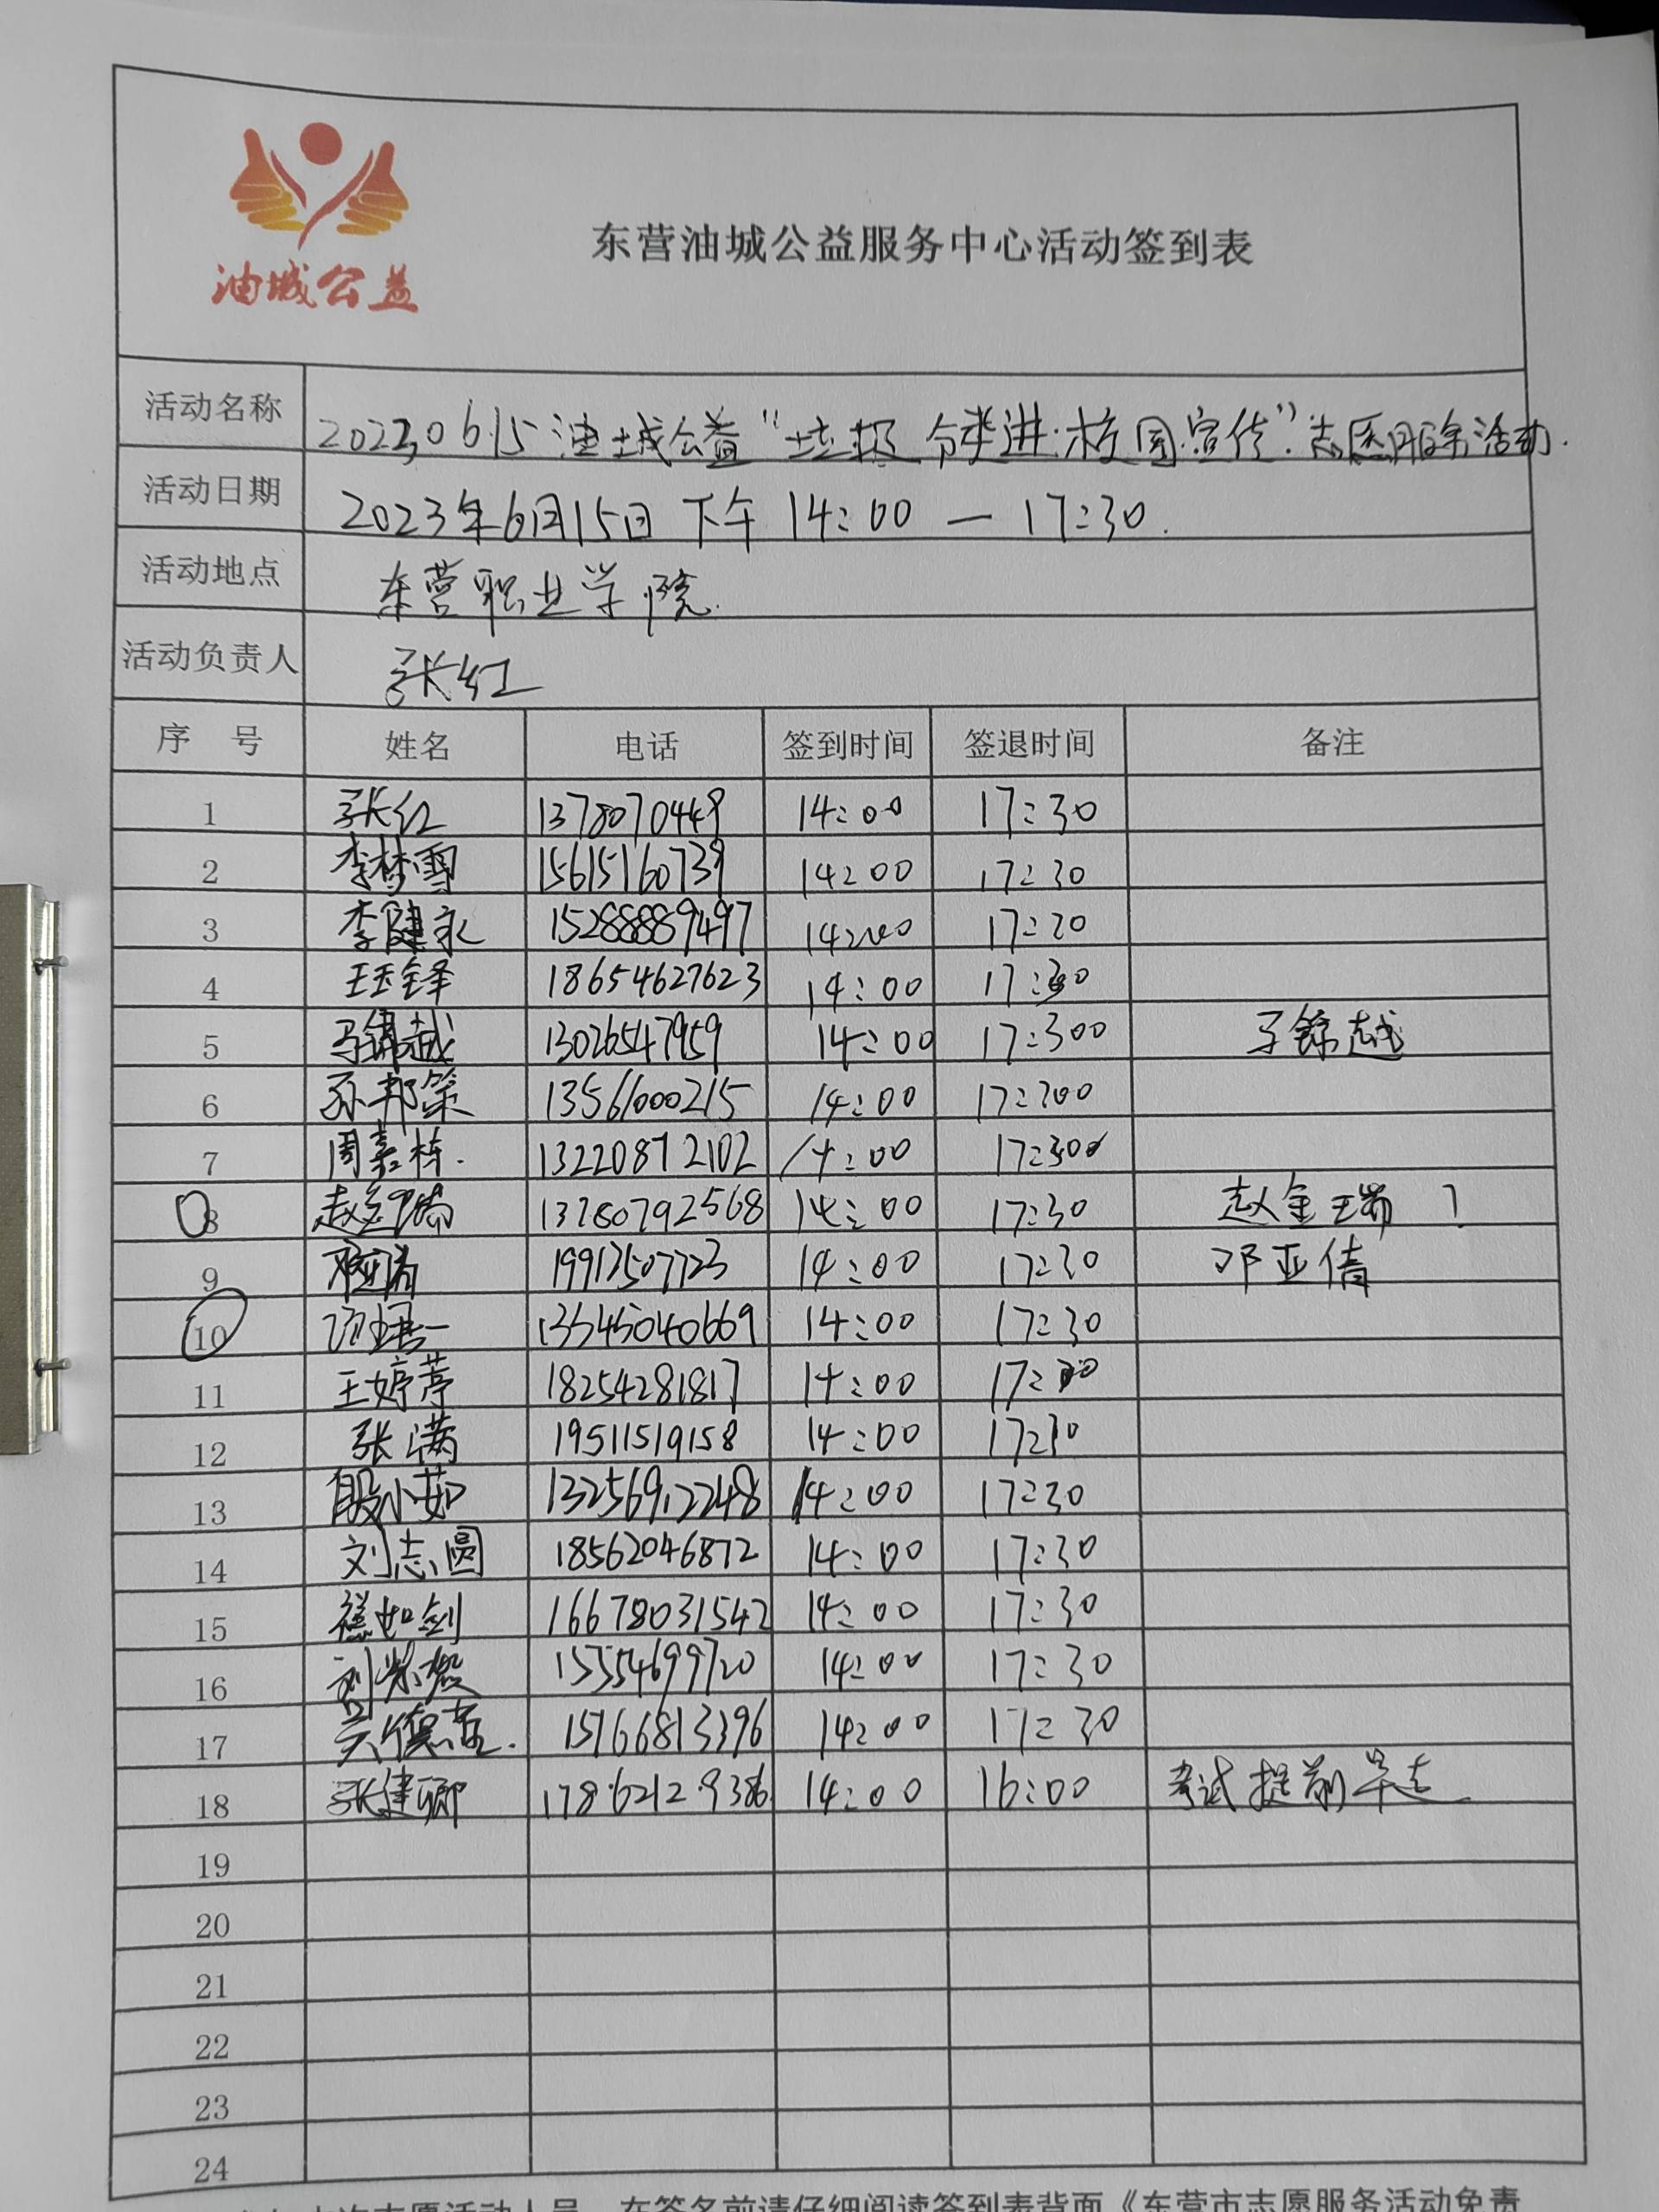 油城公益
东营油城公益服务中心活动签到表
活动名称 20230615油城公益“垃圾分类进校园宣传”志愿服务活动.
活动日期 2023年6月15日 下午 14:00 — 17:30.
活动地点 东营职业学院.
活动负责人 张红
序 号 姓名 电话 签到时间 签退时间 备注
1 张红 1378070449 14:00 17:30
2 李梦雪 15615160739 14:00 17:30
3 李健永 15288889497 14:00 17:30
4 王玉铎 18654627623 14:00 17:30
5 马锦越 13026547959 14:00 17:300 马锦越
6 孙邦策 13561000215 14:00 17:300
7 周嘉栋. 13220872102 14:00 17:300
8 赵金瑞 13780792568 14:00 17:30 赵金瑞 ?
9 邓亚倩 14:00 17:30 邓亚倩
10 13545040669 14:00 17:30
11 王婷葶 18254281817 14:00 17:30
12 张满 19511519158 14:00 17:30
13 殷小茹 13256912248 14:00 17:30
14 刘志圆 18562046872 14:00 17:30
15 16678031542 14:00 17:30
16 15554699720 14:00 17:30
17 15766813396 14:00 17:30
18 张建卿 17862129386 14:00 16:00 考试提前早走
19
20
21
22
23
24
在签名前请仔细阅读签到表背面《东营市志愿服务活动免责